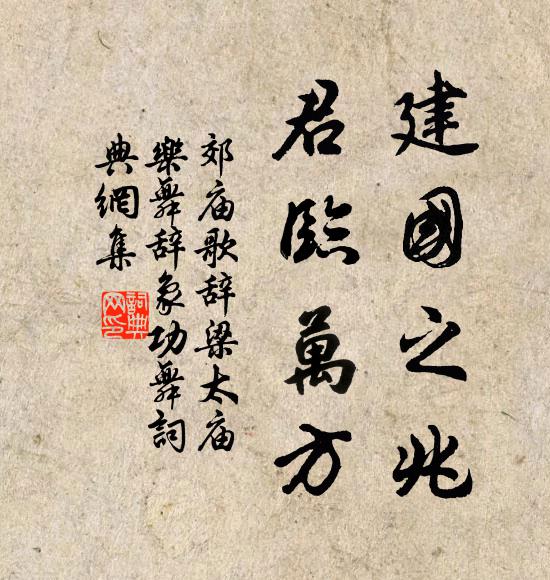 建國之兆
君臨萬方
郊庙歌辞梁太庙
樂舞辞象功舞詞
典網集
詞典
网印